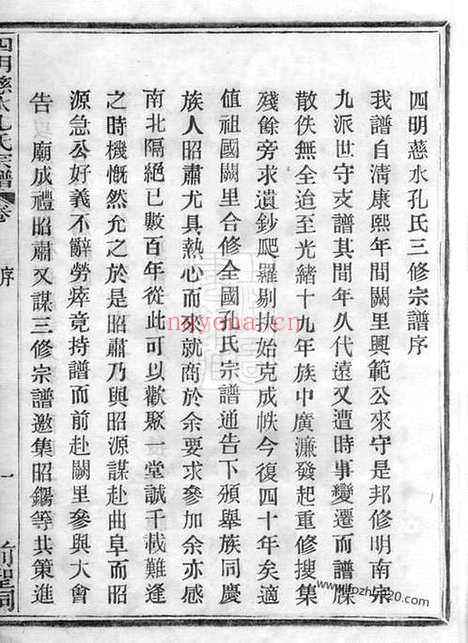 四明慈水孔氏三修宗譜序
我譜自清康熙年間闕里興範公來守是邦修明南宗
九派世守支譜其間年久代遠又遭時事變遷而譜牒
散佚無全迨至光緒十九年族中廣濂發起重修搜集
殘餘旁求遺鈔爬羅剔抉始克成帙今復四十年矣適
值祖國闕里合修全國孔氏宗譜通告下頒舉族同慶
族人昭肅尤具熱心而來就商於余要求參加余亦感
南北隔絕已數百年從此可以歡聚一堂誠千載難逢
之時機慨然允之於是昭肅乃與昭源謀赴曲阜而昭
源急公好義不辭勞瘁竟持譜而前赴闕里參與大會
告　廟成禮昭肅又謀三修宗譜邀集昭鍚等共策進
四明慈水孔氏宗譜
卷
序
一
nayona.cn
www.pozhi20.com